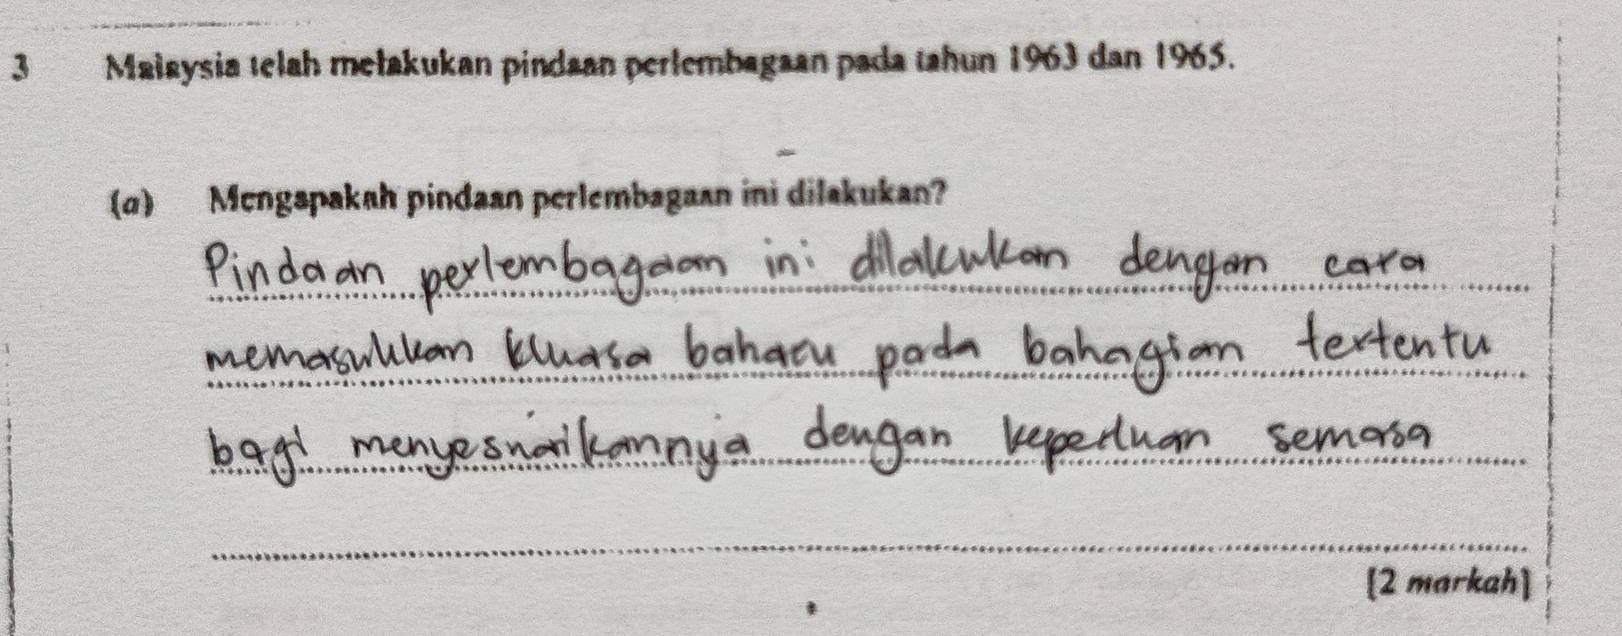 3 Malaysia telah melakukan pindaan perlembagaan pada tahun 1963 dan 1965.
(a) Mengapakah pindaan perlembagaan ini dilakukan?
Pindaan perlembagaan ini dilakukan dengan cara
memasukkan kluasa baharu pada bahagian tertentu
bagi menyesnaikannya dengan keperluan semasa
[2 markah]